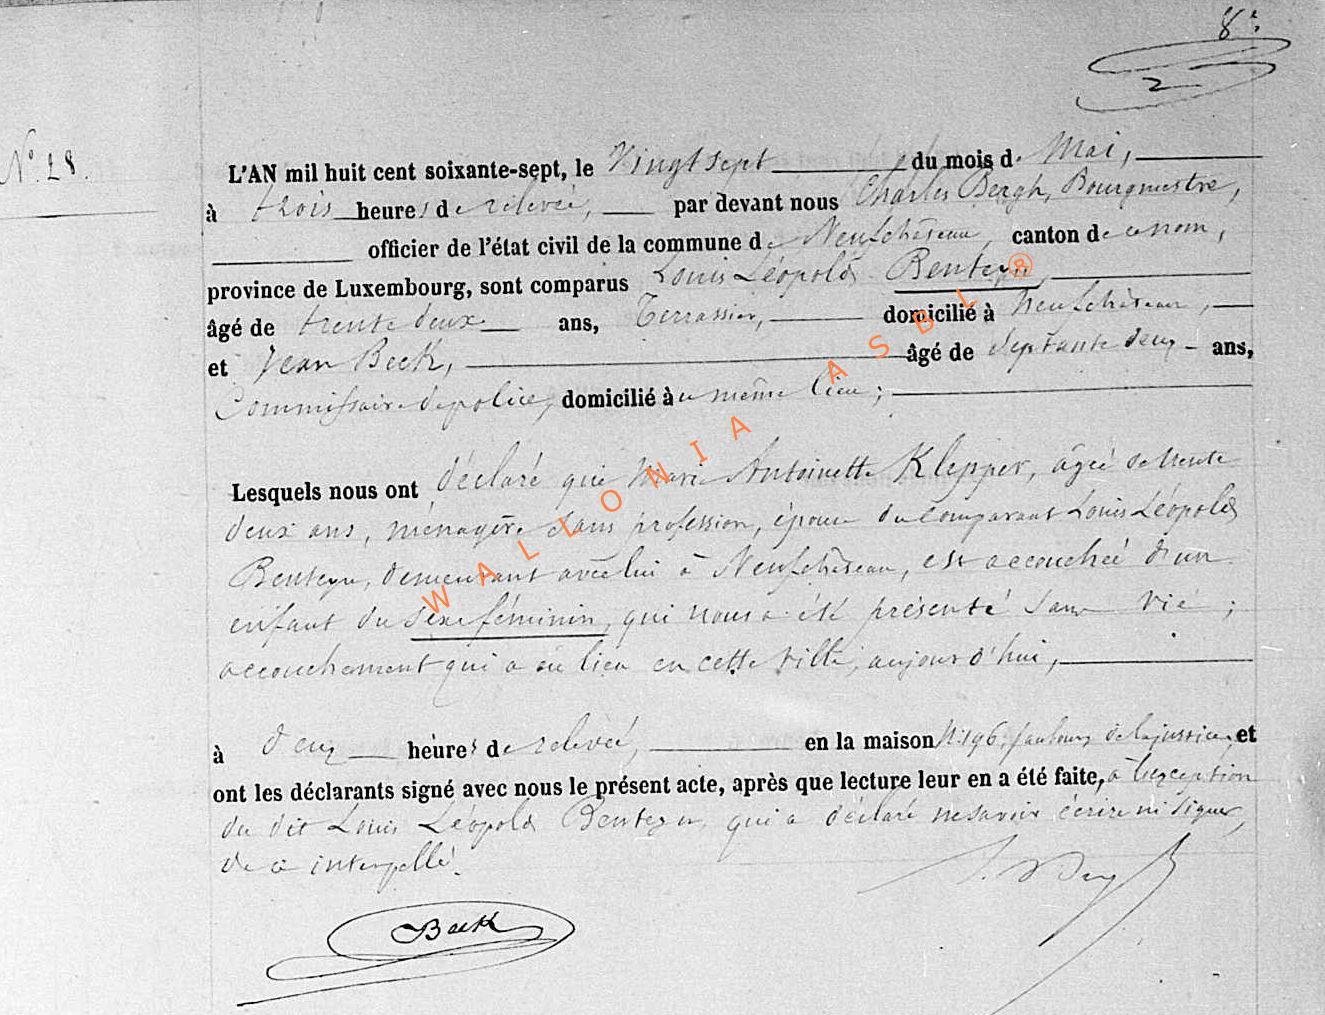 8e
2
N° 28.
L'AN mil huit cent soixante-sept, le Vingt sept du mois de Mai,
à trois heures de relevée, par devant nous Charles Bergh, Bourgmestre,
officier de l'état civil de la commune de Neufchâteau, canton de ce nom,
province de Luxembourg, sont comparus Louis Léopold Benteyn
âgé de trente deux ans, Terrassier, domicilié à Neufchâteau,
et Jean Beck, âgé de septante deux ans,
Commissaire de police, domicilié au même lieu;
Lesquels nous ont déclaré que Marie Antoinette Klepper, âgée de trente
deux ans, ménagère sans profession, épouse du comparant Louis Léopold
Benteyn, demeurant avec lui à Neufchâteau, est accouchée d'un
enfant du sexe féminin, qui nous a été présenté sans vie;
accouchement qui a eu lieu en cette ville, aujourd'hui,
à deux heures de relevée, en la maison N° 196, faubourg de la justice, et
ont les déclarants signé avec nous le présent acte, après que lecture leur en a été faite, à l'exception
du dit Louis Léopold Benteyn, qui a déclaré ne savoir écrire ni signer,
de ce interpellé.
Beck
WALLONIA ASBL ®